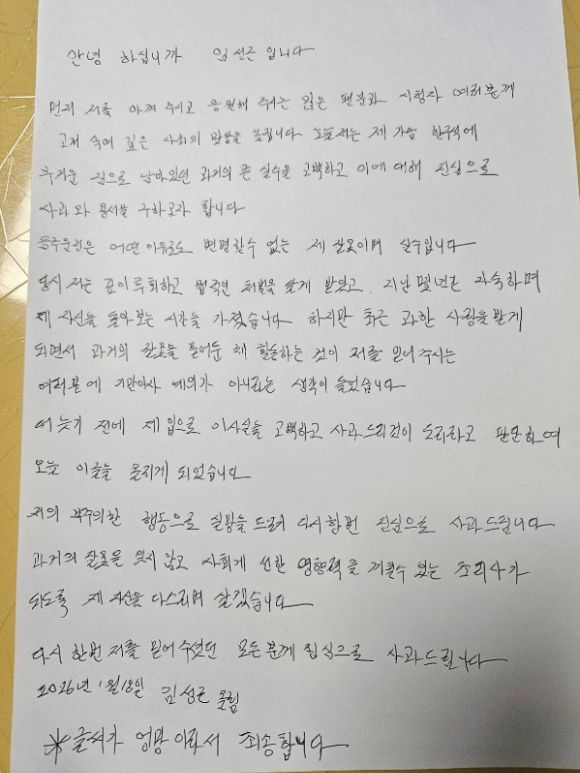 안녕 하십니까 임성근 입니다
먼저 저를 아껴 주시고 응원해 주시는 많은 팬분과 시청자 여러분께
고개 숙여 깊은 사죄의 말씀을 올립니다 오늘 저는 제 가슴 한구석에
무거운 짐으로 남아있던 과거의 큰 실수를 고백하고 이에 대해 진심으로
사과와 용서를 구하고자 합니다
음주운전은 어떤 이유로도 변명할수 없는 제 잘못이며 실수입니다
당시 저는 깊이 후회하고 법적인 처벌을 달게 받았고, 지난 몇년간 자숙하며
제 자신을 돌아보는 시간을 가졌습니다 하지만 최근 과한 사랑을 받게
되면서 과거의 잘못을 묻어둔 채 활동하는 것이 저를 믿어주시는
여러분에 기만이자 예의가 아니라는 생각이 들었습니다
더 늦기 전에 제 입으로 이사실을 고백하고 사과드리것이 도리라고 판단하여
오늘 이글을 올리게 되었습니다
저의 부주의한 행동으로 실망을 드려 다시한번 진심으로 사과드립니다
과거의 잘못을 잊지 않고 사회게 선한 영향력을 끼칠수 있는 조리사가
되도록 제 자신을 다스리며 살겠습니다
다시 한번 저를 믿어 주셨던 모든분께 진심으로 사과드립니다
2026년 1월 18일 임성근 올림
※글씨가 엉망 이라서 죄송합니다